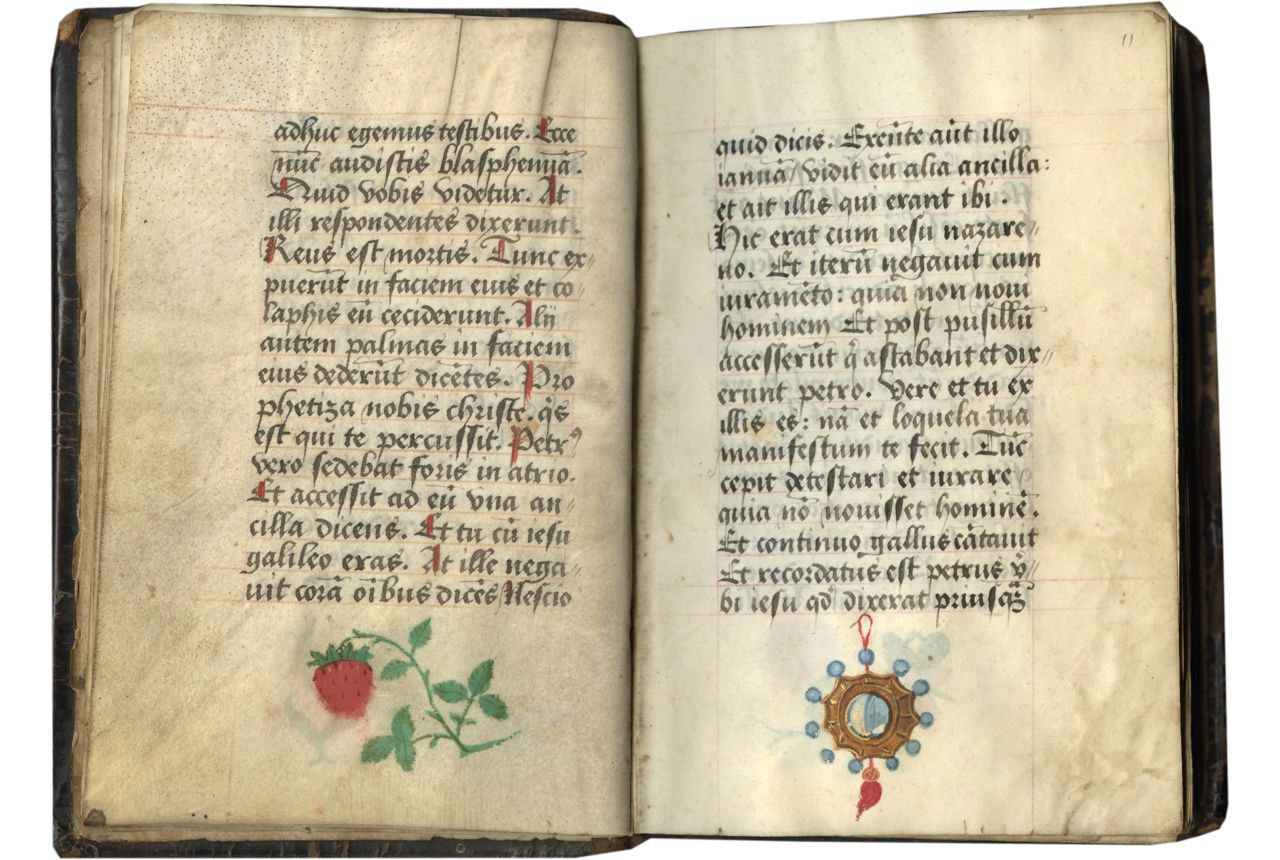 adhuc egemus testibus. Ecce
nūc audistis blasphemiā.
Quid vobis videtur. At
illi respondentes dixerunt.
Reus est mortis. Tunc ex-
puerūt in faciem eius et co-
laphis eū ceciderunt. Alij
autem palmas in faciem
eius dederūt dicētes. Pro
phetiza nobis christe. q̄s
est qui te percussit. Petrꝰ
vero sedebat foris in atrio.
Et accessit ad eū vna an-
cilla dicens. Et tu cū iesu
galileo eras. At ille nega-
uit corā oībus dicēs Nescio
11
quid dicis. Exeūte aūt illo
ianuā / vidit eū alia ancilla:
et ait illis qui erant ibi.
Hic erat cum iesu nazare-
no. Et iterū negauit cum
iuramēto: quia non noui
hominem Et post pusillū
accesserūt q̄ astabant et dix-
erunt petro. Vere et tu ex
illis es: nā et loquela tua
manifestum te fecit. Tūc
cepit detestari et iurare
quia nō nouisset hominē.
Et continuo gallus cātauit
Et recordatus est petrus v̄-
bi iesu qd̄ dixerat priusq̄ꝫ